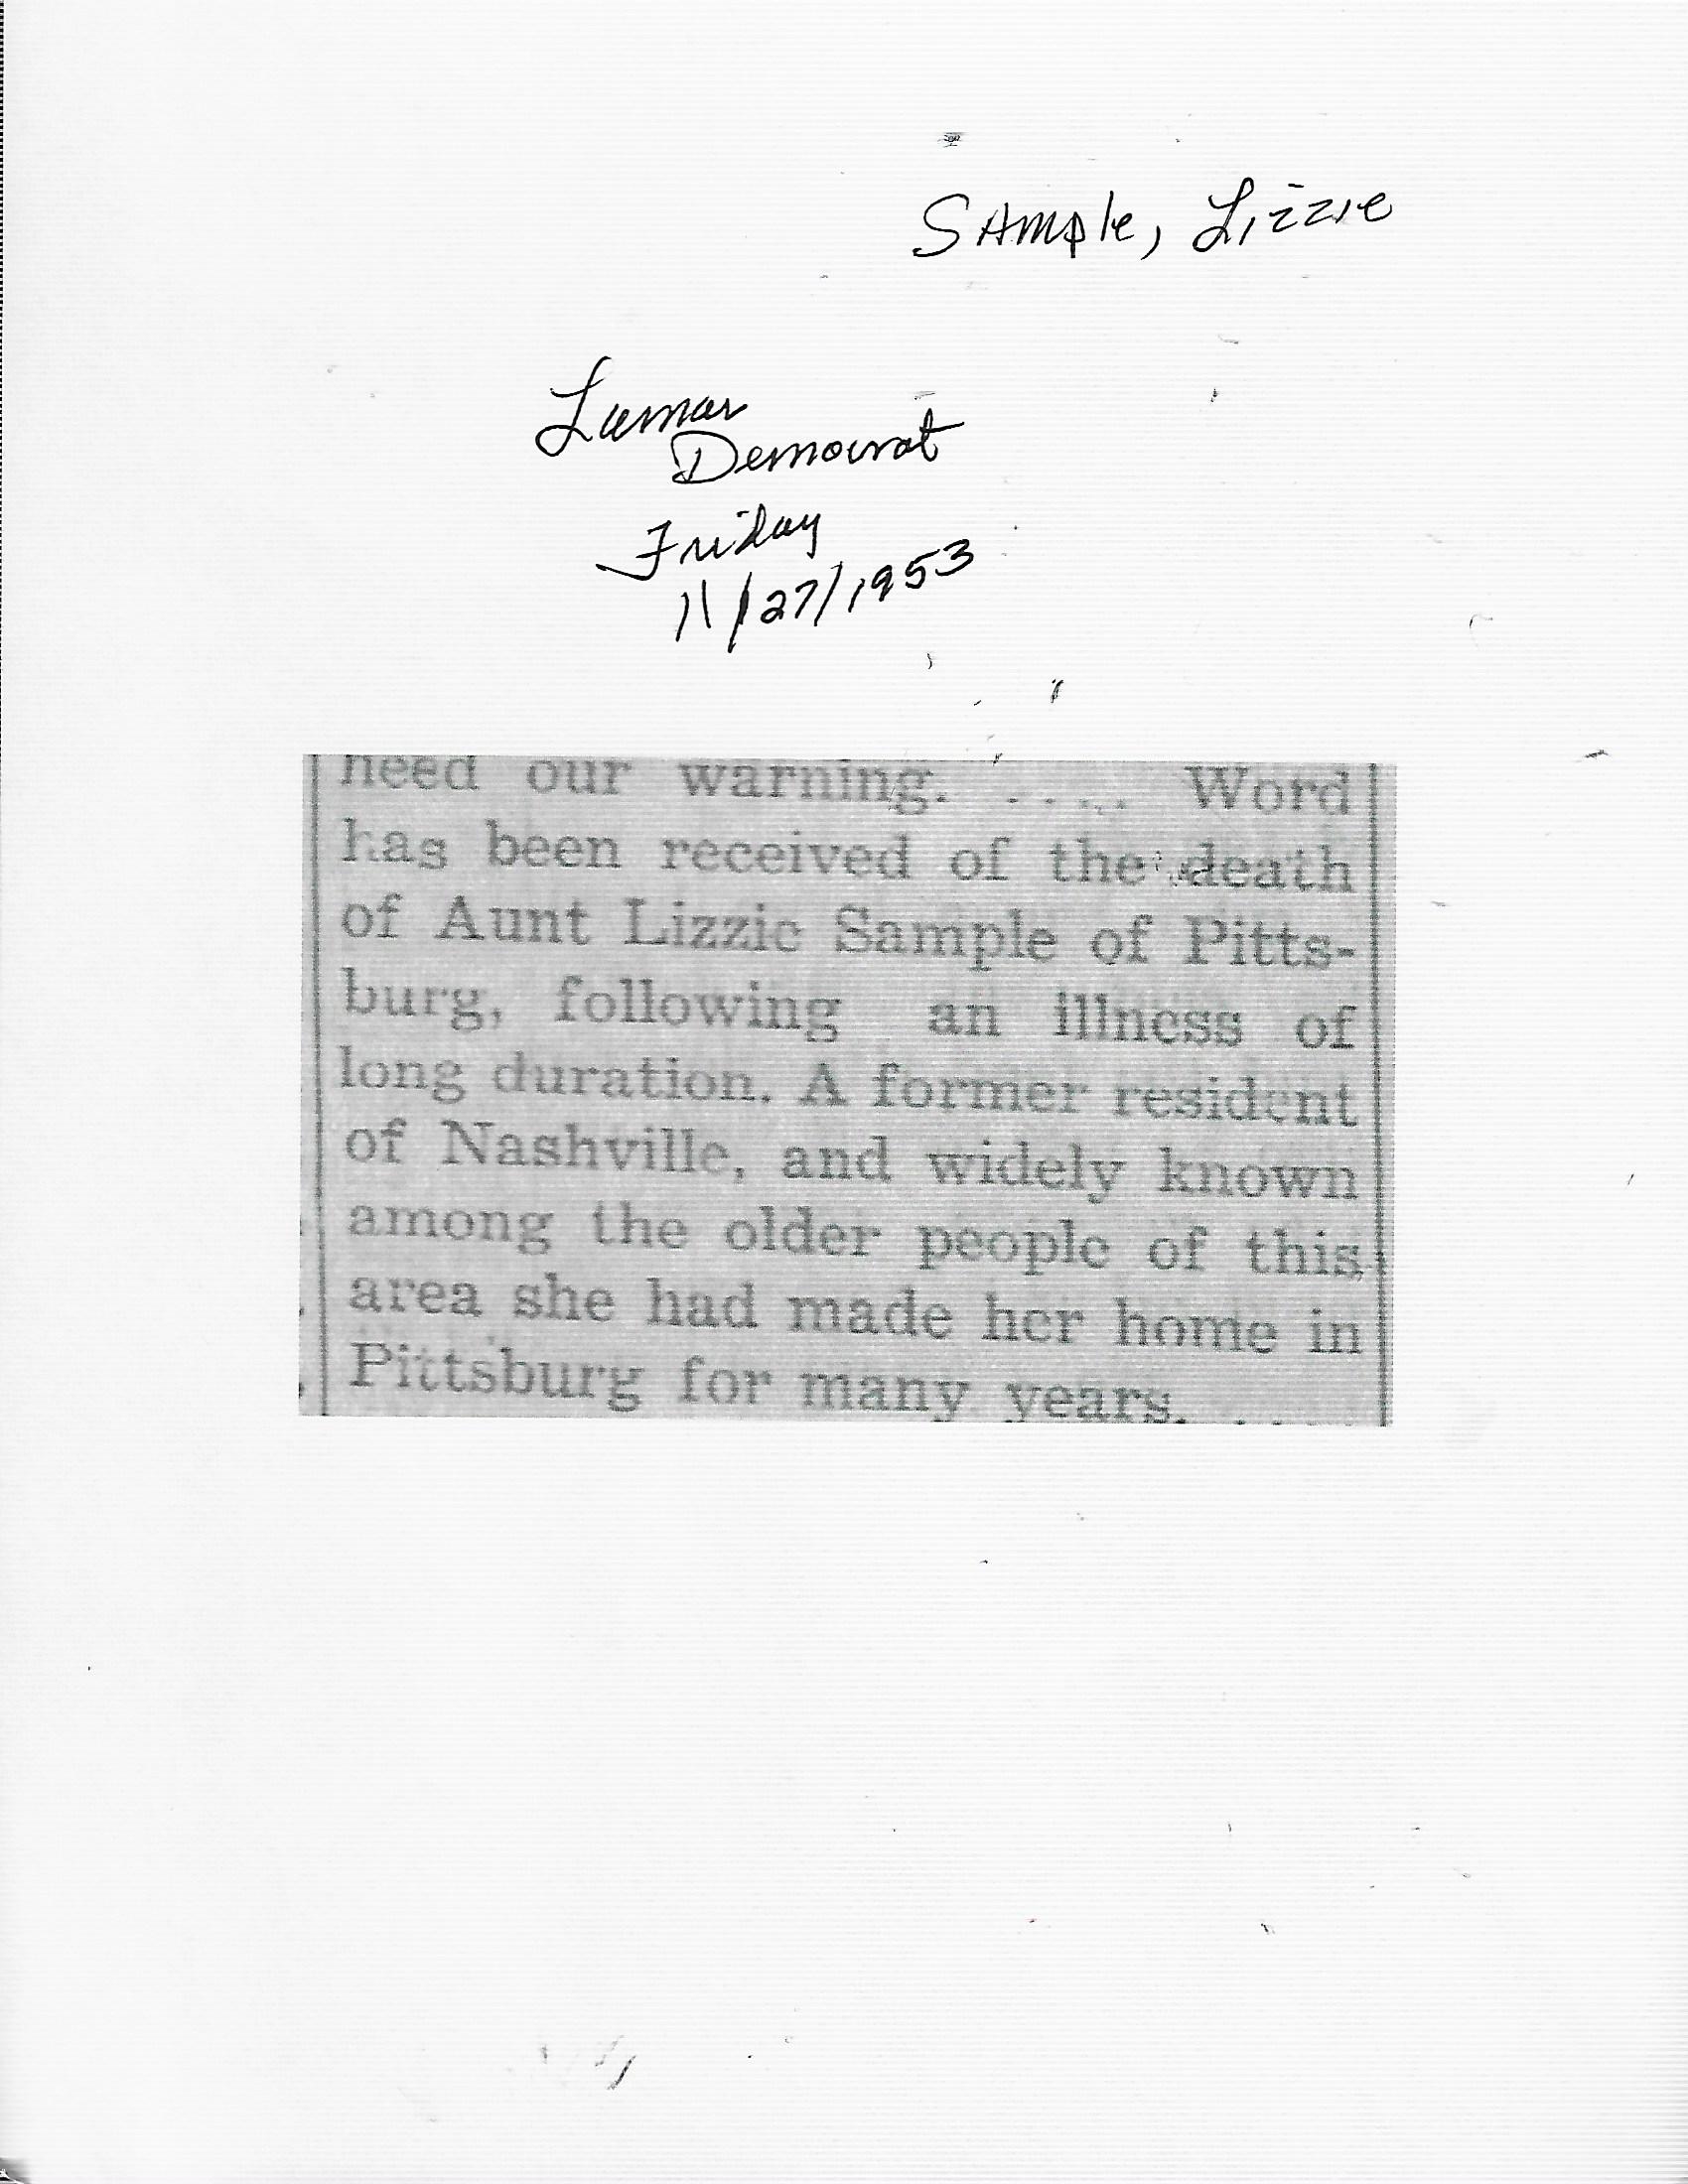 Sample, Lizzie
Lamar
Democrat
Friday
11/27/1953
heed our warning. ..... Word
has been received of the death
of Aunt Lizzie Sample of Pitts-
burg, following an illness of
long duration. A former resident
of Nashville, and widely known
among the older people of this
area she had made her home in
Pittsburg for many years. ...